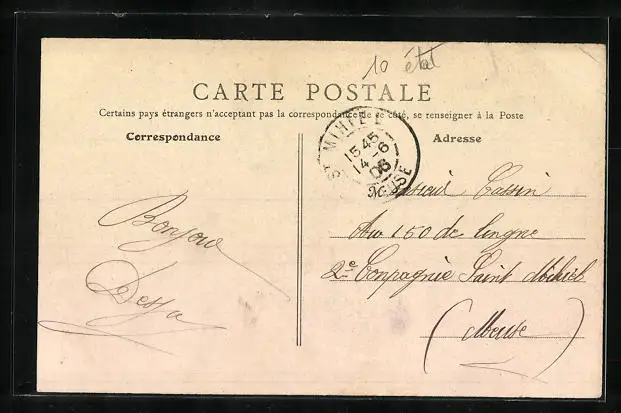 10 état
CARTE POSTALE
Certains pays étrangers n'acceptant pas la correspondance de ce côté, se renseigner à la Poste
Correspondance
Adresse
ST MIHIEL
15 45
14 - 6
06
MEUSE
Monsieur Cassin
Au 150 de lingne
2e Conpagnie Saint Michiel
(Meuse)
Bonjour